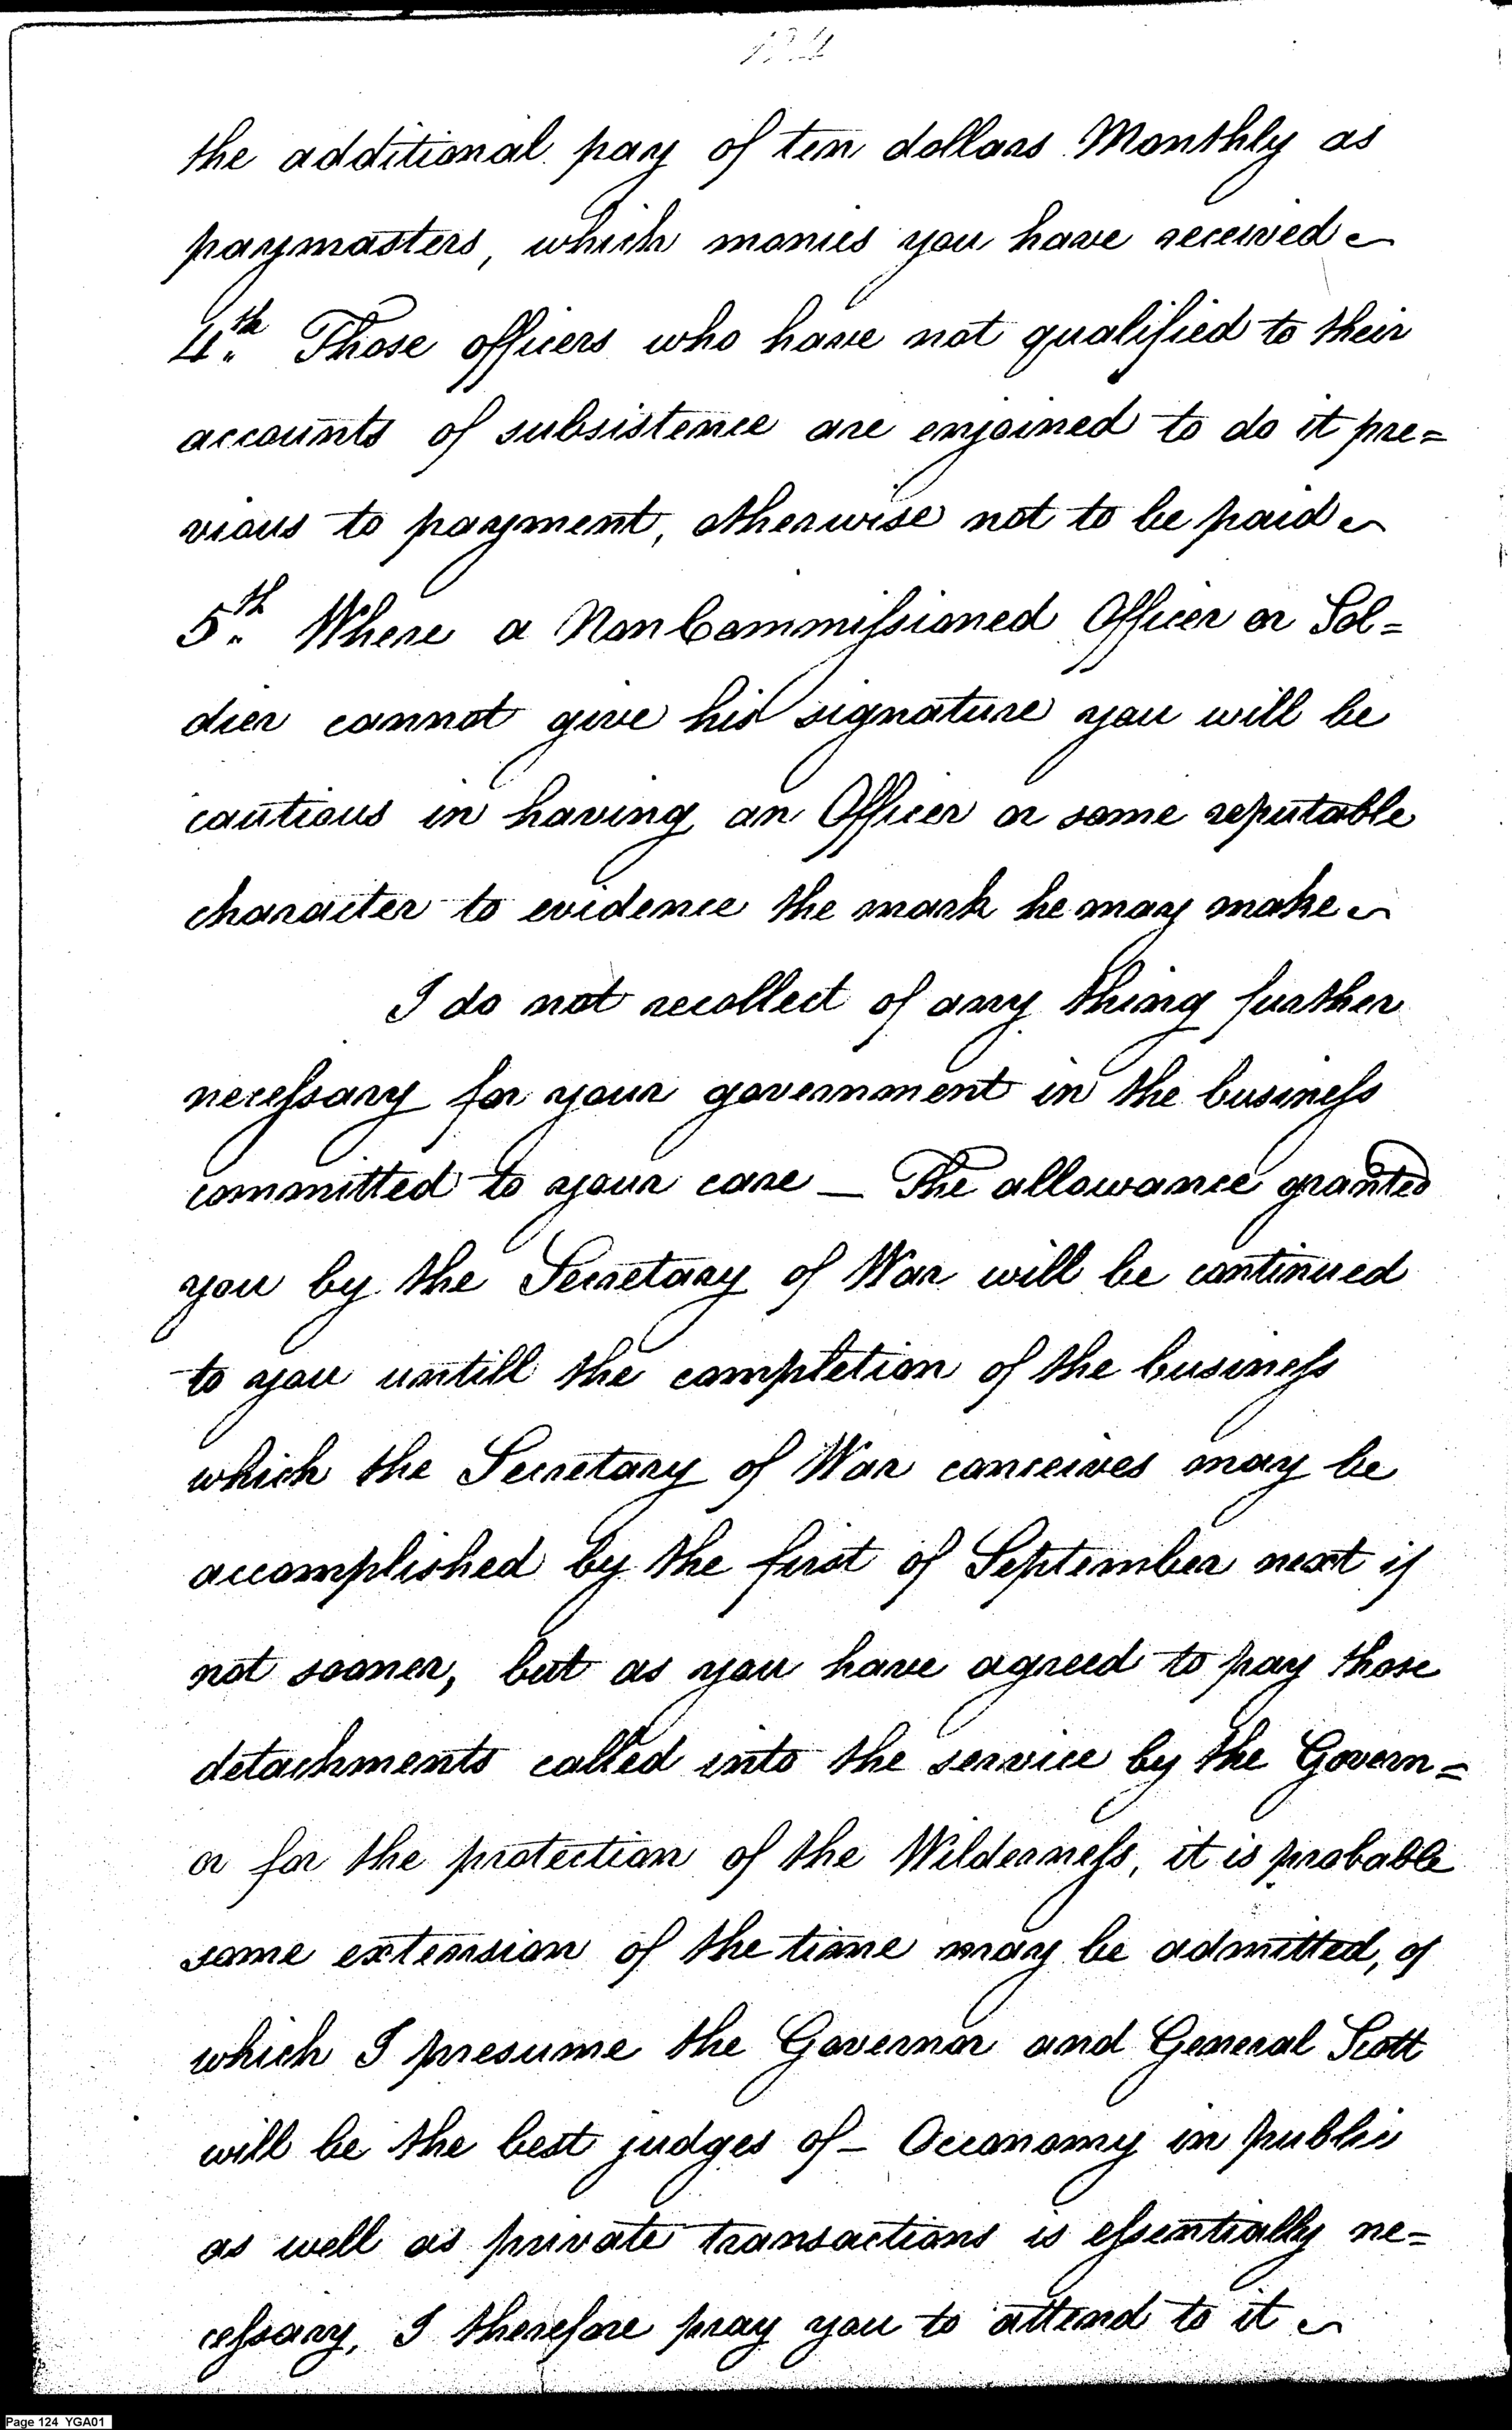 124
the additional pay of ten dollars Monthly as
paymasters, which monies you have received ~
4th. Those officers who have not qualified to their
accounts of subsistence are enjoined to do it pre=
vious to payment, otherwise not to be paid ~
5th. Where a Non Commissioned Officer or Sol=
dier cannot give his signature you will be
cautious in having an Officer or some reputable
character to evidence the mark he may make ~
I do not recollect of any thing further
necessary for your government in the business
committed to your care — The allowance granted
you by the Secretary of War will be continued
to you untill the completion of the business
which the Secretary of War conceives may be
accomplished by the first of September next if
not sooner, but as you have agreed to pay those
detachments called into the service by the Govern=
or for the protection of the Wilderness, it is probable
some extension of the time may be admitted, of
which I presume the Governor and General Scott
will be the best judges of – Oeconomy in public
as well as private transactions is essentially ne=
cessary, I therefore pray you to attend to it ~
Page 124 YGA01